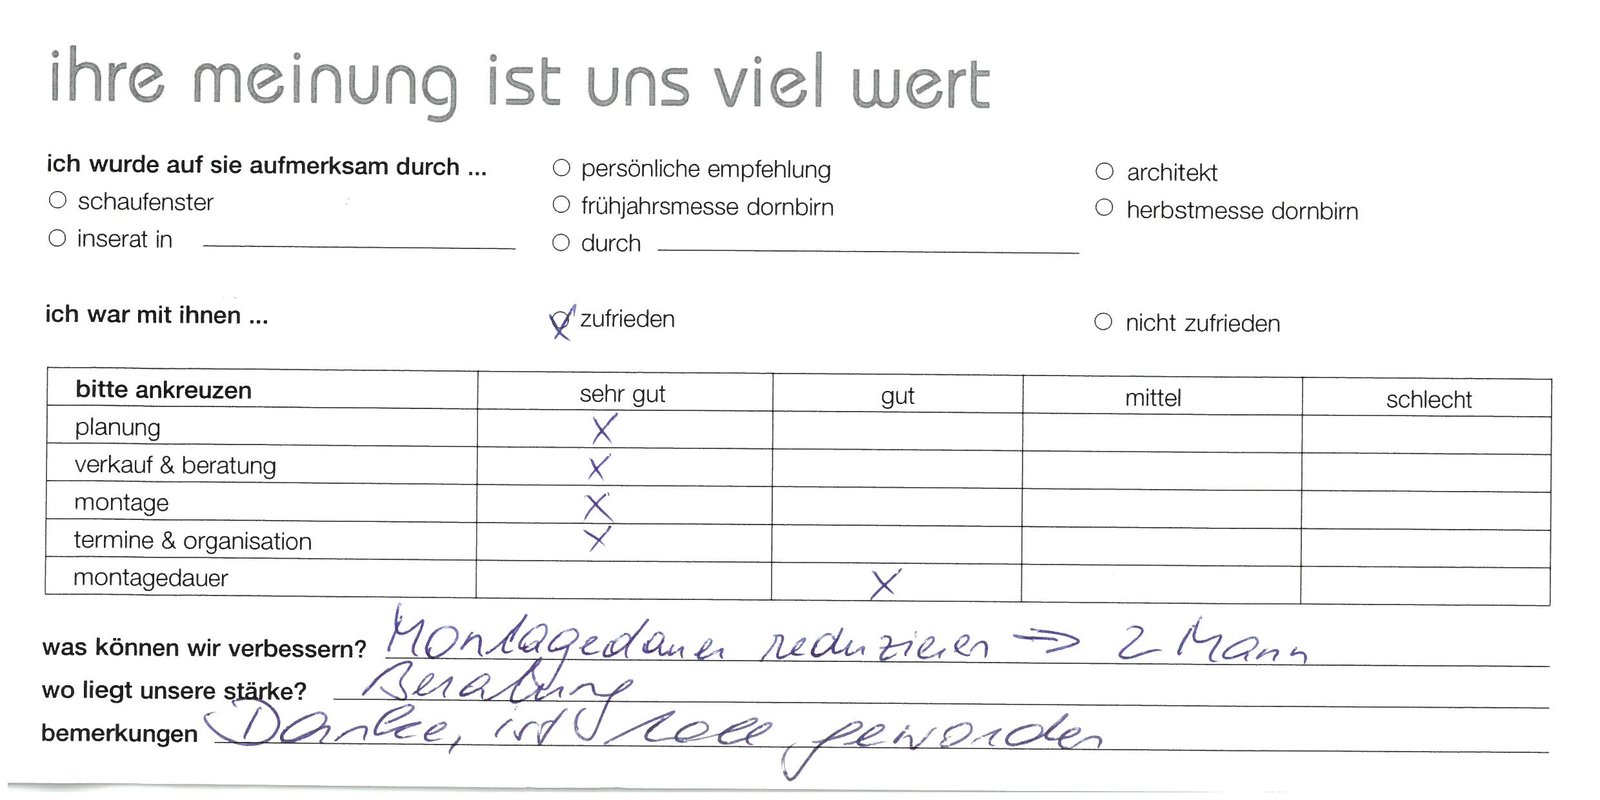 ihre meinung ist uns viel wert
ich wurde auf sie aufmerksam durch ... persönliche empfehlung architekt
schaufenster frühjahrsmesse dornbirn herbstmesse dornbirn
inserat in durch
ich war mit ihnen ... zufrieden nicht zufrieden
bitte ankreuzen sehr gut gut mittel schlecht
planung X
verkauf & beratung X
montage X
termine & organisation X
montagedauer X
was können wir verbessern? Montagedauer reduzieren => 2 Mann
wo liegt unsere stärke? Beratung
bemerkungen Danke, ist toll geworden